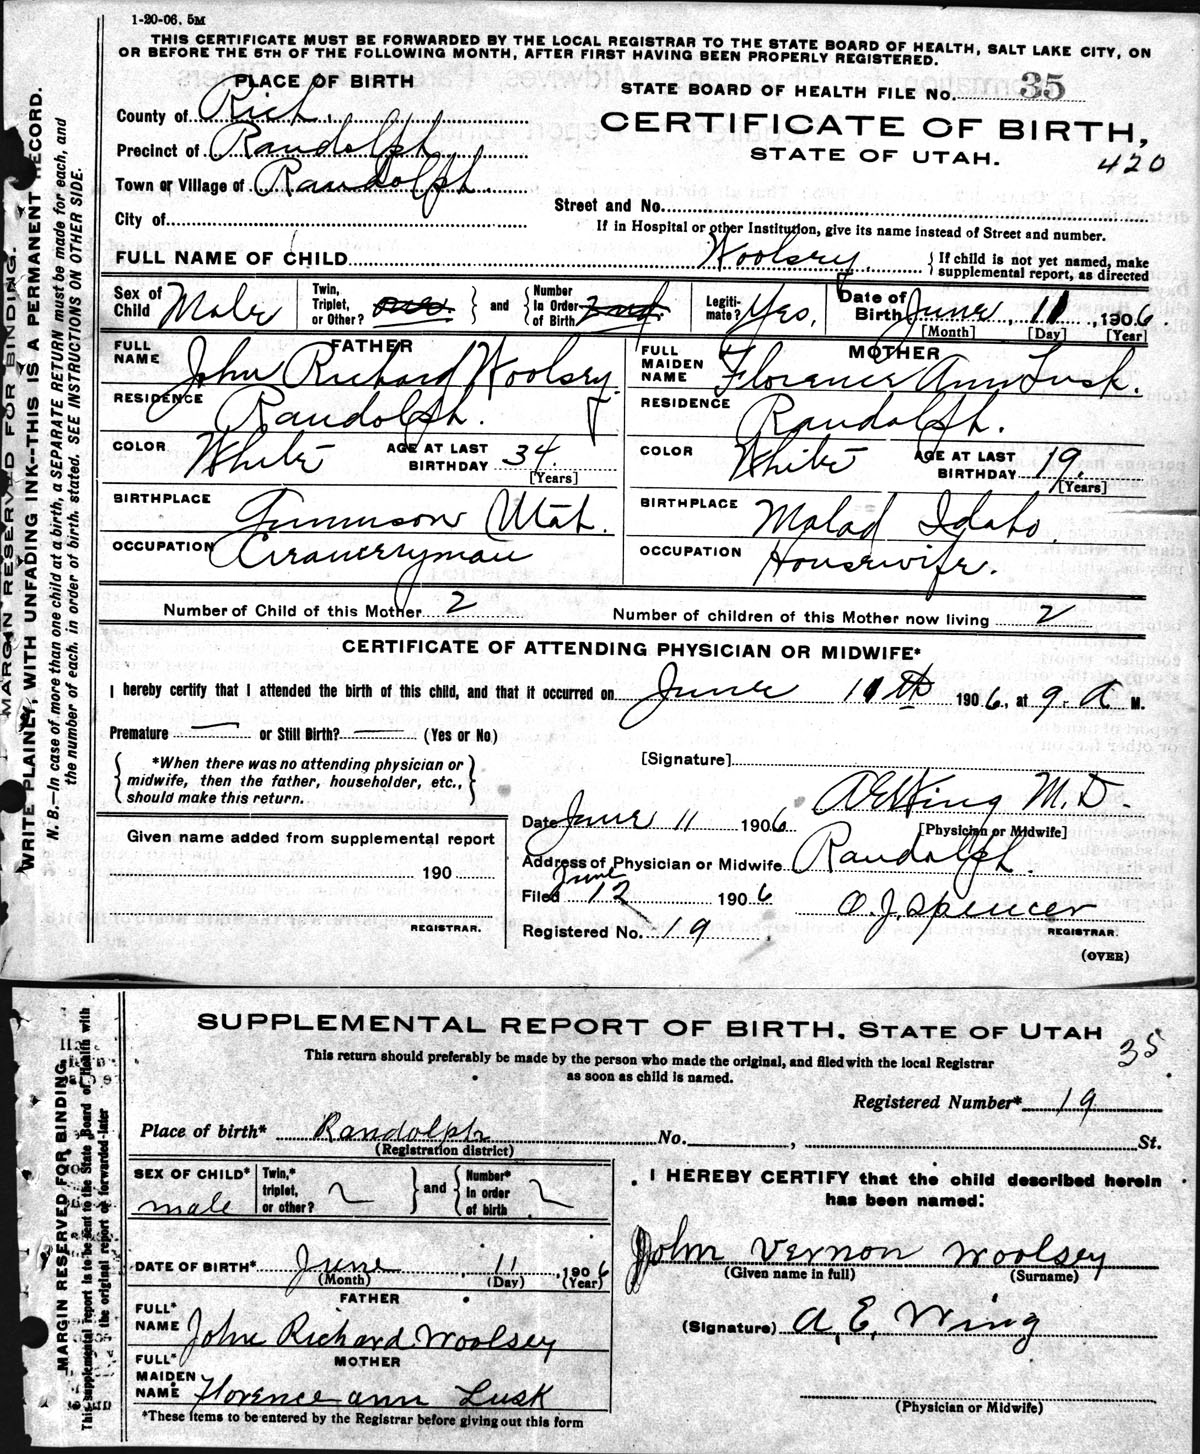 1-20-06. 5M
THIS CERTIFICATE MUST BE FORWARDED BY THE LOCAL REGISTRAR TO THE STATE BOARD OF HEALTH, SALT LAKE CITY, ON
OR BEFORE THE 5TH OF THE FOLLOWING MONTH, AFTER FIRST HAVING BEEN PROPERLY REGISTERED.
PLACE OF BIRTH
STATE BOARD OF HEALTH FILE No. 35
County of Rich.
CERTIFICATE OF BIRTH,
Precinct of Randolph
STATE OF UTAH.
420
Town or Village of Randolph.
Street and No.
City of
If in Hospital or other Institution, give its name instead of Street and number.
FULL NAME OF CHILD Woolsey. { If child is not yet named, make
supplemental report, as directed
Sex of Child Male
Twin, Triplet, or Other? one } and { Number In Order of Birth 2nd.
Legitimate? Yes.
Date of Birth June 11, 1906.
[Month] [Day] [Year]
FATHER
FULL NAME John Richard Woolsey.
RESIDENCE Randolph.
COLOR White AGE AT LAST BIRTHDAY 34.
[Years]
BIRTHPLACE Gunnison Utah.
OCCUPATION Creameryman
MOTHER
FULL MAIDEN NAME Florence Ann Lusk.
RESIDENCE Randolph.
COLOR White AGE AT LAST BIRTHDAY 19.
[Years]
BIRTHPLACE Malad Idaho.
OCCUPATION Housewife.
Number of Child of this Mother 2 Number of children of this Mother now living 2
CERTIFICATE OF ATTENDING PHYSICIAN OR MIDWIFE*
I hereby certify that I attended the birth of this child, and that it occurred on June 11th 1906., at 9- A M.
Premature — or Still Birth? — (Yes or No)
{ *When there was no attending physician or
midwife, then the father, householder, etc.,
should make this return. }
[Signature]
A E Wing M.D.
[Physician or Midwife]
Date June 11 1906.
Address of Physician or Midwife Randolph.
Filed June 12 1906
O. J. Spencer
REGISTRAR.
Registered No. 19
(OVER)
Given name added from supplemental report
190
REGISTRAR.
MARGIN RESERVED FOR BINDING.
WRITE PLAINLY, WITH UNFADING INK--THIS IS A PERMANENT RECORD.
N. B.—In case of more than one child at a birth, a SEPARATE RETURN must be made for each, and
the number of each, in order of birth, stated. SEE INSTRUCTIONS ON OTHER SIDE.
SUPPLEMENTAL REPORT OF BIRTH, STATE OF UTAH
35
This return should preferably be made by the person who made the original, and filed with the local Registrar
as soon as child is named.
Registered Number* 19
Place of birth* Randolph No. , St.
(Registration district)
SEX OF CHILD* male
Twin,* triplet, or other? 2 } and { Number* in order of birth 2
I HEREBY CERTIFY that the child described herein
has been named:
John Vernon Woolsey
(Given name in full) (Surname)
DATE OF BIRTH* June 11, 1906
(Month) (Day) (Year)
FATHER
FULL* NAME John Richard Woolsey
(Signature) A. E. Wing
MOTHER
FULL* MAIDEN NAME Florence ann Lusk
(Physician or Midwife)
*These items to be entered by the Registrar before giving out this form
MARGIN RESERVED FOR BINDING.
This supplemental report is to be sent to the State Board of Health with
the original report or forwarded later